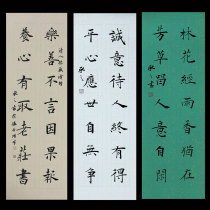 林花經雨香猶在
芳草留人意自閒
誠意待人終有得
平心應世自無爭
樂善不言因果報
養心有取老莊書